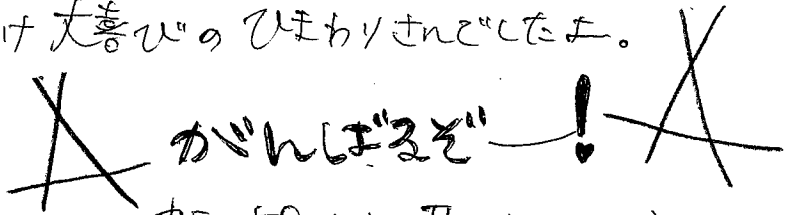 け大喜びのひまわりさんでしたよ。
がんばるぞー!